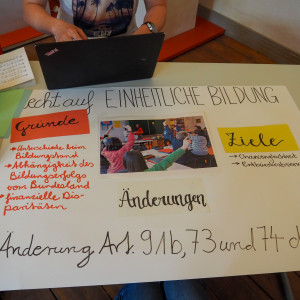 echt auf EINHEITLICHE BILDUNG
Gründe
→ Unterschiede beim
Bildungsstand
→ Abhängigkeit des
Bildungserfolgs
vom Bundesland
→ finanzielle Dis-
paritäten
Ziele
→ Chancengleichheit
Änderungen
Änderung Art. 91b, 73 und 74 d